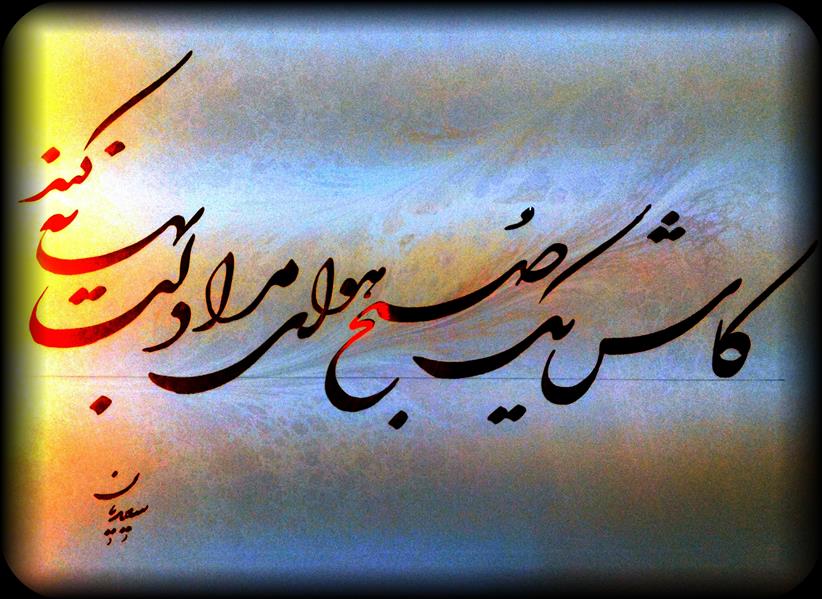 کاش یک صُبح هوای مرا دلت بهانه کند